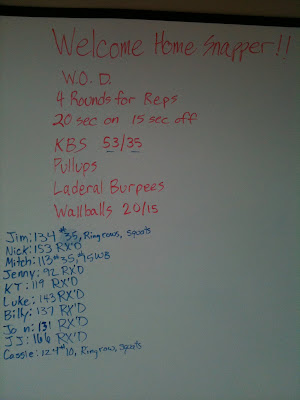 Welcome Home Snapper!!
W.O.D.
4 Rounds for Reps
20 sec on 15 sec off
KBS 53/35
Pullups
Laderal Burpees
Wallballs 20/15
Jim: 134 #35, Ringrows, squats
Nick: 153 RX'D
Mitch: 113 #35, #15 WB
Jenny: 92 RX'D
KT: 119 RX'D
Luke: 143 RX'D
Billy: 137 RX'D
131 RX'D
JJ: 166 RX'D
Cassie: 124 #10, Ringrow, squats